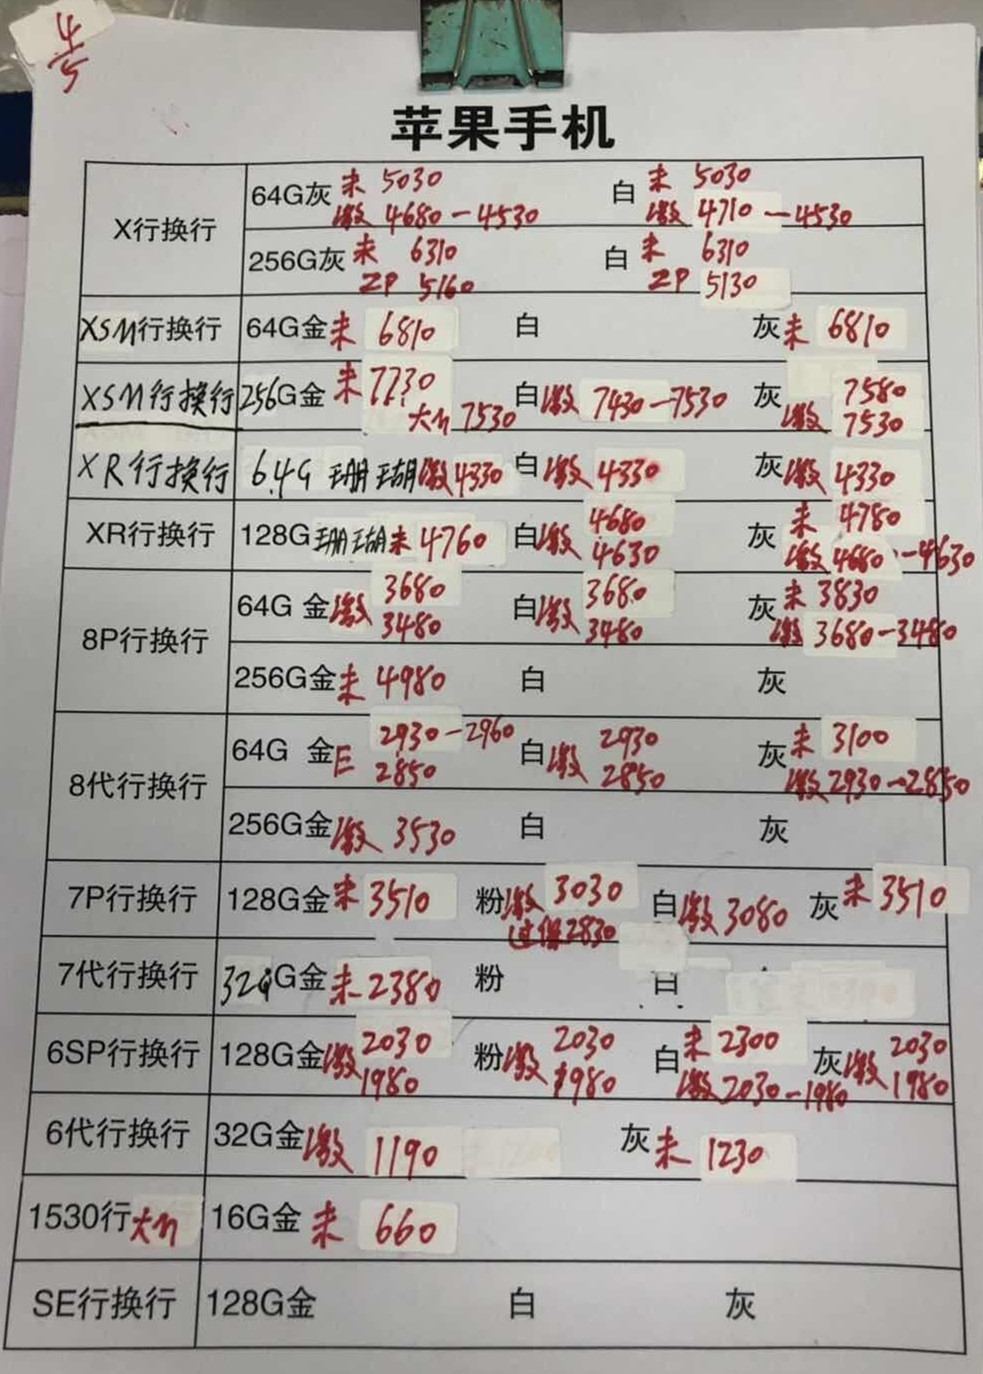 4/5
苹果手机
X行换行 64G灰 未 5030 白 未 5030
激 4680-4530 激 4710-4530
256G灰 未 6310 白 未 6310
ZP 5160 ZP 5130
XSM行换行 64G金 未 6810 白 灰 未 6810
XSM行换行 256G金 未 7730 白 激 7430-7530 灰 7580
大n 7530 激 7530
XR行换行 64G 珊瑚 激 4330 白 激 4330 灰 激 4330
XR行换行 128G 珊瑚 未 4760 白 激 4680 灰 未 4780
4630 激 4680-4630
8P行换行 64G 金 激 3680 白 激 3680 灰 未 3830
3480 3480 激 3680-3480
256G金 未 4980 白 灰
8代行换行 64G 金 E 2930-2960 白 激 2930 灰 未 3100
2850 2850 激 2930-2850
256G金 激 3530 白 灰
7P行换行 128G金 未 3510 粉 激 3030 白 激 3080 灰 未 3510
过保 2830
7代行换行 32GG金 未 2380 粉 白
6SP行换行 128G金 激 2030 粉 激 2030 白 未 2300 灰 激 2030
1980 1980 激 2030-1980 1980
6代行换行 32G金 激 1190 灰 未 1230
1530行大n 16G金 未 660
SE行换行 128G金 白 灰